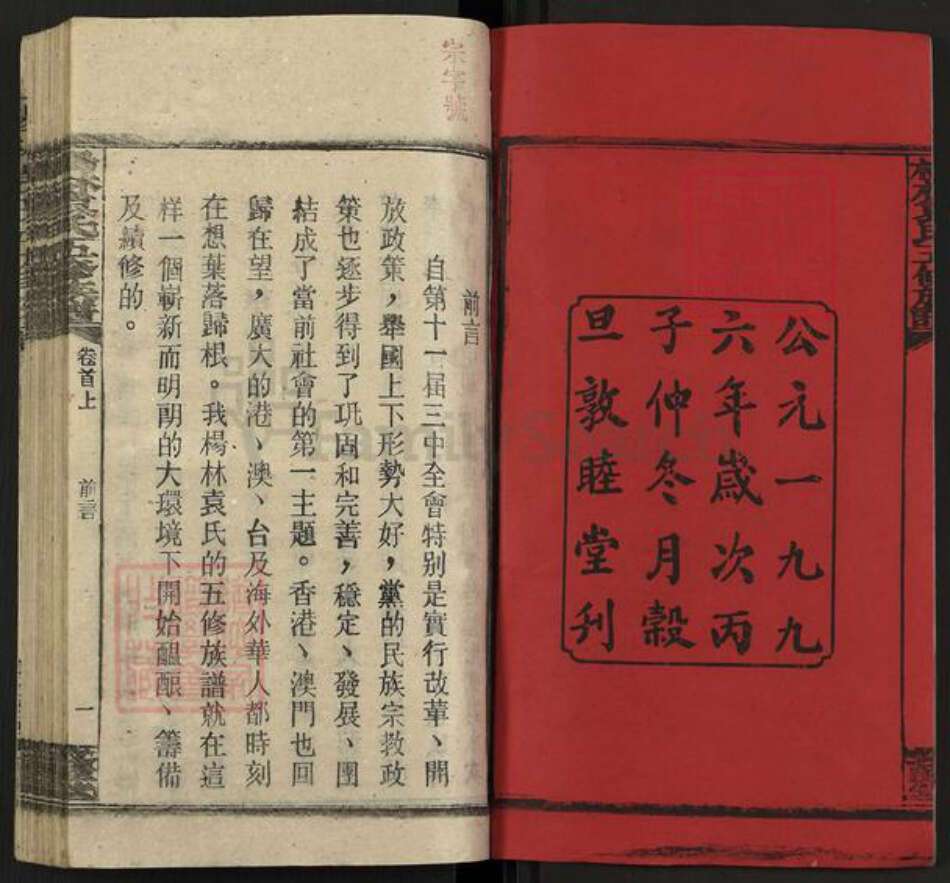 公元一九九
六年歲次丙
子仲冬月榖
旦敦睦堂刋
宗字號
前言
自第十一届三中全會特别是實行改革、開
放政策，舉國上下形勢大好，黨的民族宗教政
策也逐步得到了巩固和完善，穩定、發展、團
結成了當前社會的第一主題。香港、澳門也回
歸在望，廣大的港、澳、台及海外華人都時刻
在想葉落歸根。我楊林袁氏的五修族譜就在這
样一個嶄新而明朗的大環境下開始醖釀、籌備
及續修的。
卷首上
前言
一